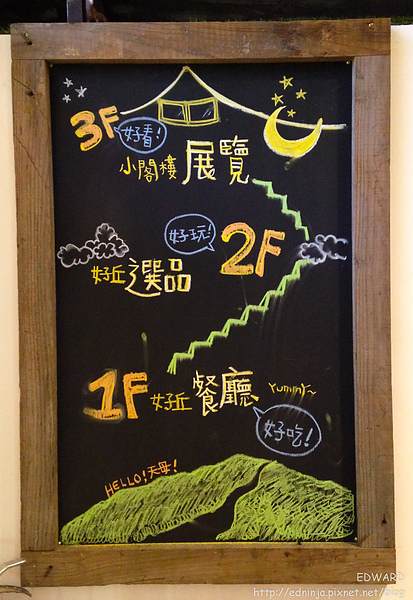 3F
好看!
小閣樓 展覽
好玩!
2F
好丘 選品
1F 好丘 餐廳 Yummy~
好吃!
HELLO!天母!
EDWARD
http://edninja.pixnet.net/blog